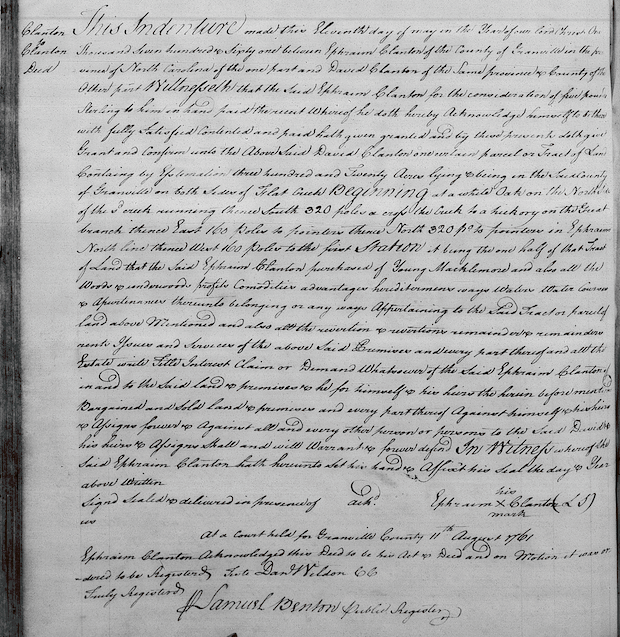 Clanton
to
Clanton
Deed
This Indenture made this Eleventh day of in the Year of our lord Christ One
thousand Seven hundred & Sixty one between Ephraim Clanton of the County of Granville in the pro
vence of North Carolina of the one part and David Clanton of the Same province & County of the
Other part Witnesseth that the Said Ephraim Clanton for the consideration of five pounds
Sterling to him in hand paid the receipt Whereof he doth hereby Acknowledge himself to be there
with fully Satisfied Contented and paid hath given granted and by these presents doth give
Grant and Confirm unto the Above Said David Clanton one certain parcel or Tract of Land
Containg by Estemation three hundred and Twenty Acres lying & being in the Said County
of Granville on both Sides of Flat Creek Beginning at a white Oak on the North Side
of the Sd creek running thence South 320 poles a cross the Creek to a hickory on the Great
branch thence East 160 poles to pointers thence North 320 po to pointers in Ephraims
North line thence West 160 poles to the first Station it being the one half of that Tract
of Land that the Said Ephraim Clanton purchased of Young Macklemore and also all the
Woods & underwoods profits Comodities advantages hereditements ways Waters Water Courses
& Apurtenances thereunto belonging or any ways Appertaining to the Said Tract or parcel of
land above Mentioned and also all the revertion & revertions remainder & remainders
rents Issues and Services of the above Said Premises and every part thereof and all the
Estate write Title Interest Claim or Demand Whatsoever of the Said Ephraim Clanton of
in and to the Said land & premises & he for himself & his heirs the herein before mentiond
Bargained and Sold land & premises and every part thereof Against himself & his heirs
& Assigns forever & Against all and every other person or persons to the Said David &
his heirs & Assigns Shall and will Warrant & forever defend In Witness whereof the
Said Ephraim Clanton hath hereunto set his hand & Affixt his Seal the day & Year
above Written
Signd Sealed & delivered in presence of ackd. Ephraim his X mark Clanton (L S)
us
At a Court held for Granville County 11th August 1761
Ephraim Clanton Acknowledged this Deed to be his Act & Deed and on Motion it was or
dered to be Registerd Teste Danl Weldon CC
Truly Registerd
Samuel Benton Public Register